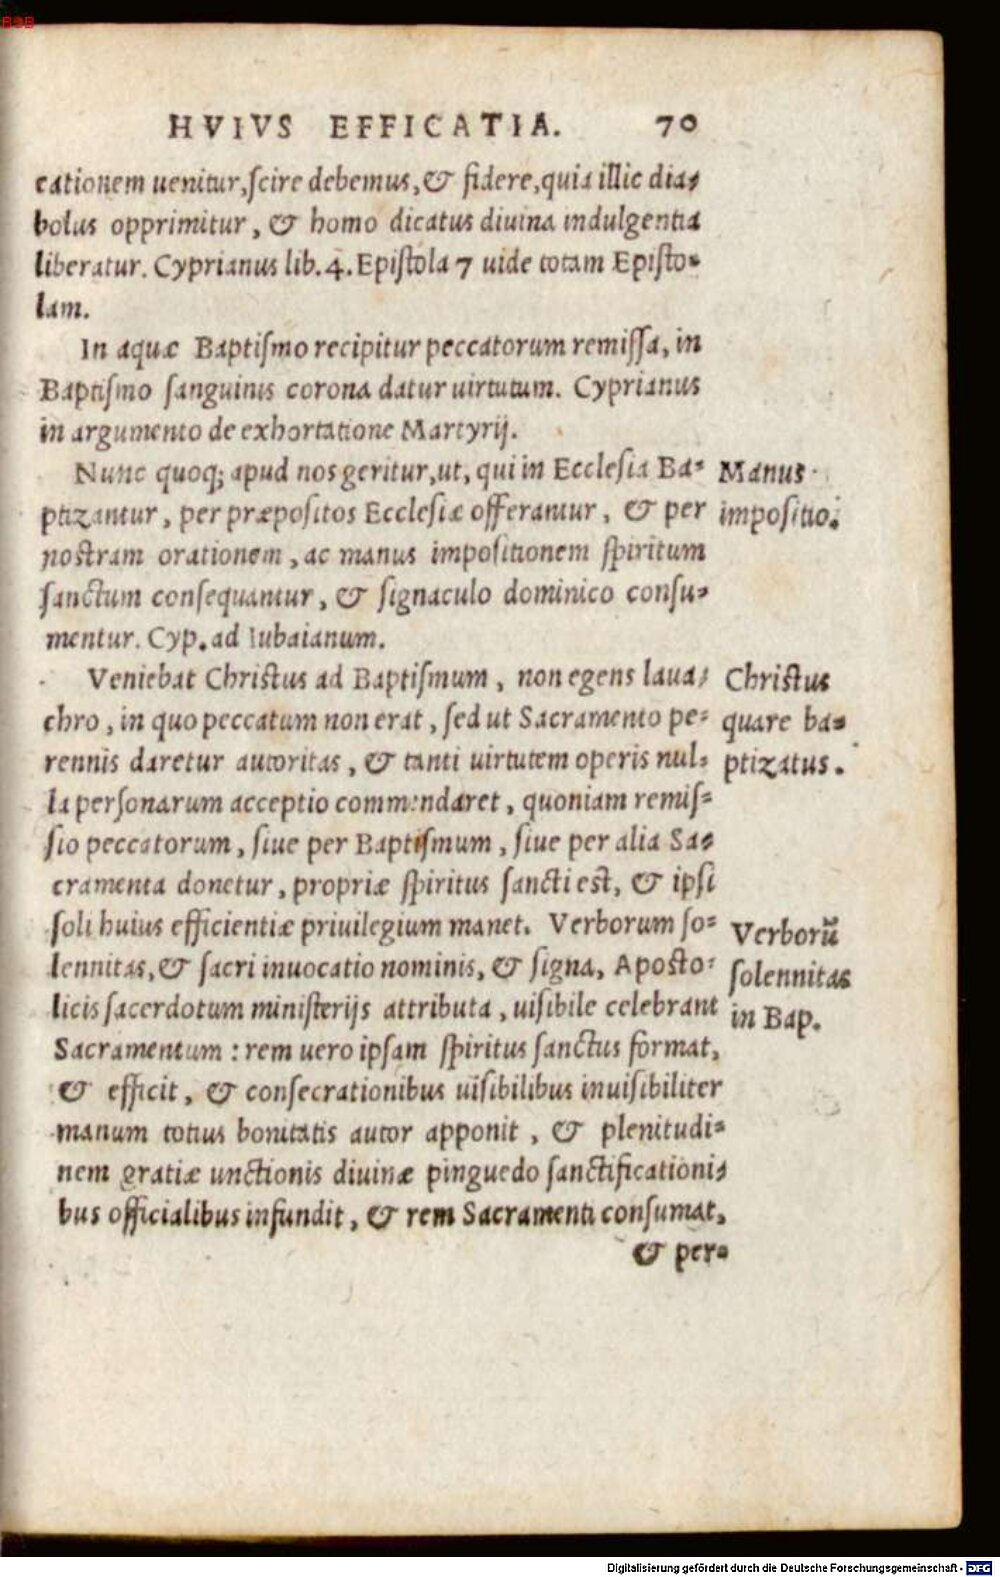 HVIVS EFFICATIA. 70
cationem uenitur, ſcire debemus, & fidere, quia illic dia-
bolus opprimitur, & homo dicatus diuina indulgentia
liberatur. Cyprianus lib. 4. Epiſtola 7 uide totam Epiſto-
lam.
In aquæ Baptiſmo recipitur peccatorum remiſſa, in
Baptiſmo ſanguinis corona datur uirtutum. Cyprianus
in argumento de exhortatione Martyrij.
Nunc quoq; apud nos geritur, ut, qui in Eccleſia Ba-
ptizantur, per præpoſitos Eccleſiæ offerantur, & per
noſtram orationem, ac manus impoſitionem ſpiritum
ſanctum conſequantur, & ſignaculo dominico conſu-
mentur. Cyp. ad Iubaianum.
Manus
impoſitio.
Veniebat Chriſtus ad Baptiſmum, non egens laua-
chro, in quo peccatum non erat, ſed ut Sacramento pe-
rennis daretur autoritas, & tanti uirtutem operis nul-
la perſonarum acceptio commendaret, quoniam remiſ-
ſio peccatorum, ſiue per Baptiſmum, ſiue per alia Sa-
cramenta donetur, propriæ ſpiritus ſancti eſt, & ipſi
ſoli huius efficientiæ priuilegium manet. Verborum ſo-
lennitas, & ſacri inuocatio nominis, & ſigna, Apoſto-
licis ſacerdotum miniſterijs attributa, uiſibile celebrant
Sacramentum: rem uero ipſam ſpiritus ſanctus format,
& efficit, & conſecrationibus uiſibilibus inuiſibiliter
manum totius bonitatis autor apponit, & plenitudi-
nem gratiæ unctionis diuinæ pinguedo ſanctificationi-
bus officialibus infundit, & rem Sacramenti conſumat,
& per-
Chriſtus
quare ba-
ptizatus.
Verborũ
ſolennitas
in Bap.
BSB
Digitalisierung gefördert durch die Deutsche Forschungsgemeinschaft - DFG